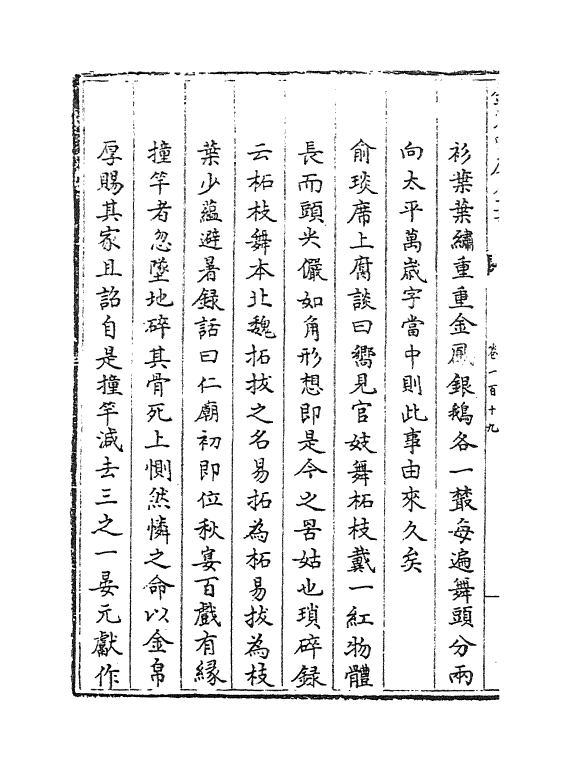 卷一百十九
衫葉葉繡重重金鳳銀鵝各一藂每遍舞頭分兩
向太平萬歲字當中則此事由來久矣
俞琰席上腐談曰嚮見官妓舞柘枝戴一紅物體
長而頭尖儼如角形想即是今之罟姑也瑣碎録
云柘枝舞本北魏拓拔之名易拓為柘易拔為枝
葉少蘊避暑録話曰仁廟初即位秋宴百戲有縁
撞竿者忽墜地碎其骨死上惻然憐之命以金帛
厚賜其家且詔自是撞竿減去三之一晏元獻作